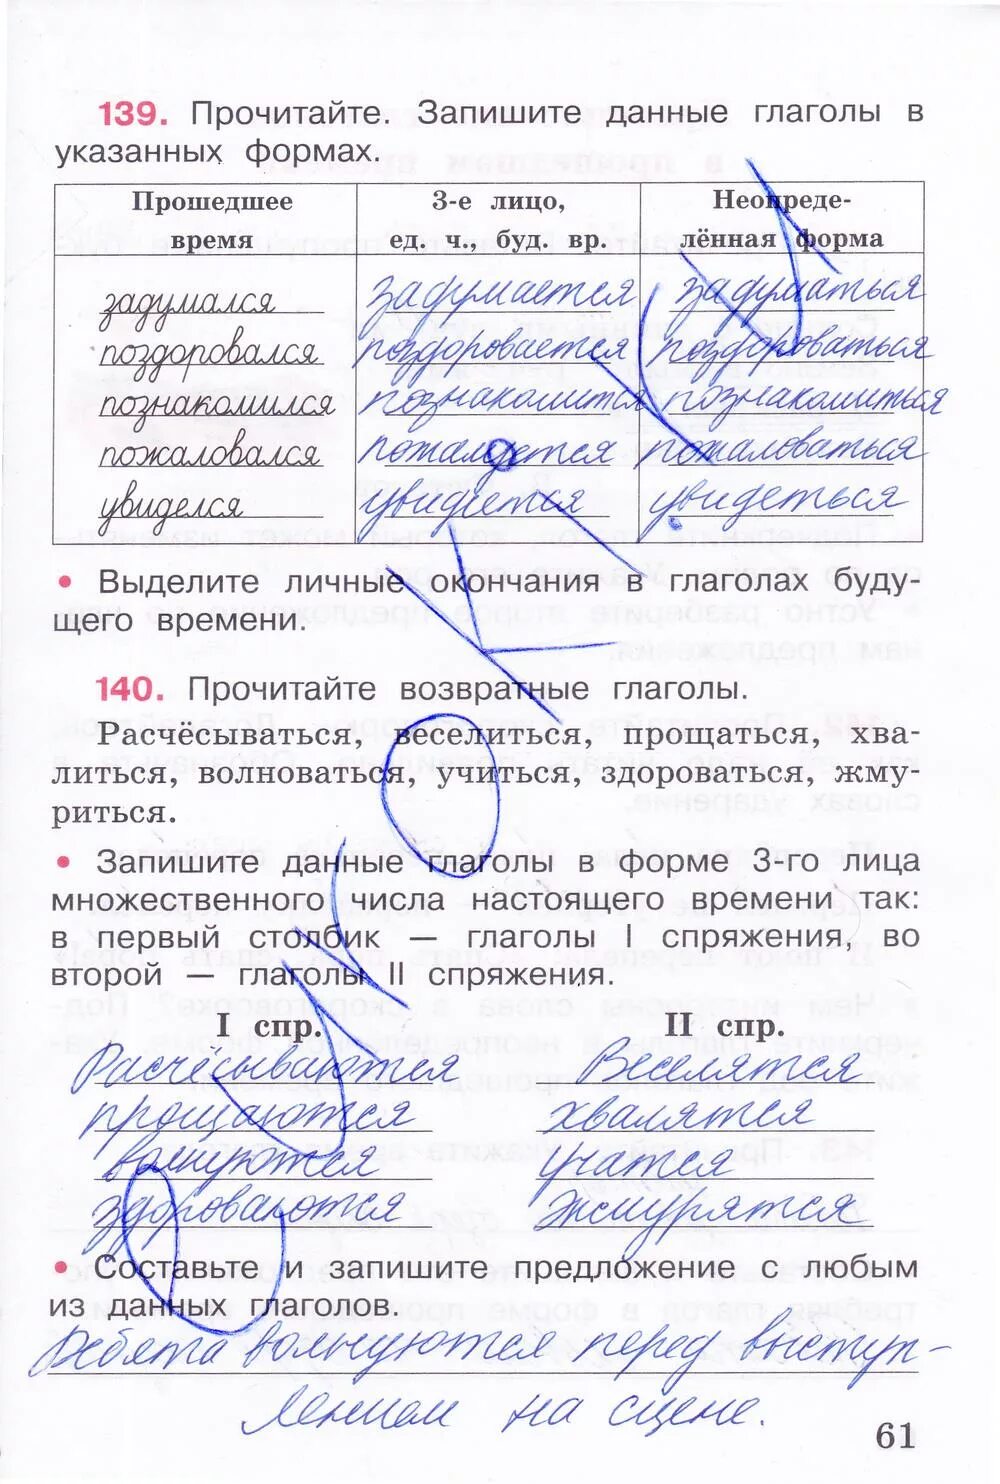 139. Прочитайте. Запишите данные глаголы в
указанных формах.
Прошедшее время
3-е лицо, ед. ч., буд. вр.
Неопреде-лённая форма
задумался задумается задуматься
поздоровался поздоровается поздороваться
познакомился познакомится познакомиться
пожаловался пожалуется пожаловаться
увиделся увидится увидеться
• Выделите личные окончания в глаголах буду-
щего времени.
140. Прочитайте возвратные глаголы.
Расчёсываться, веселиться, прощаться, хва-
литься, волноваться, учиться, здороваться, жму-
риться.
• Запишите данные глаголы в форме 3-го лица
множественного числа настоящего времени так:
в первый столбик — глаголы I спряжения, во
второй — глаголы II спряжения.
I спр. II спр.
Расчёсываются Веселятся
прощаются хвалятся
волнуются учатся
здороваются жмурятся
• Составьте и запишите предложение с любым
из данных глаголов.
Ребята волнуются перед выступ-
лением на сцене.
61